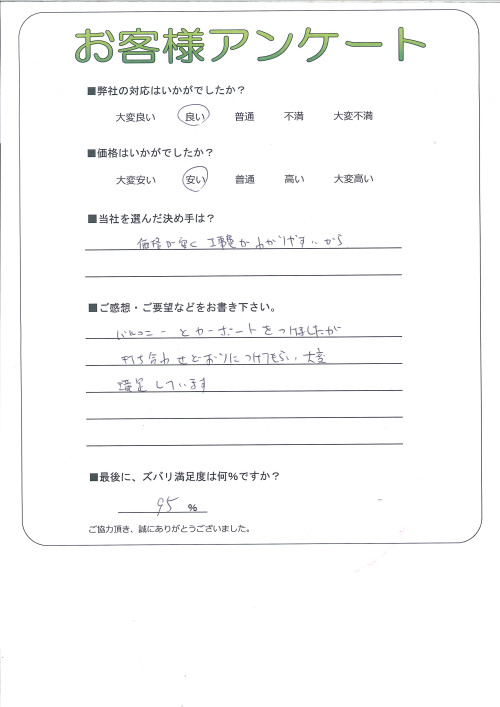 お客様アンケート
■弊社の対応はいかがでしたか？
大変良い 良い 普通 不満 大変不満
■価格はいかがでしたか？
大変安い 安い 普通 高い 大変高い
■当社を選んだ決め手は？
価格が安く 工事費がわかりやすいから
■ご感想・ご要望などをお書き下さい。
バルコニーとカーポートをつけましたが
打ち合わせどおりにつけてもらい、大変
満足しています
■最後に、ズバリ満足度は何%ですか？
95 %
ご協力頂き、誠にありがとうございました。